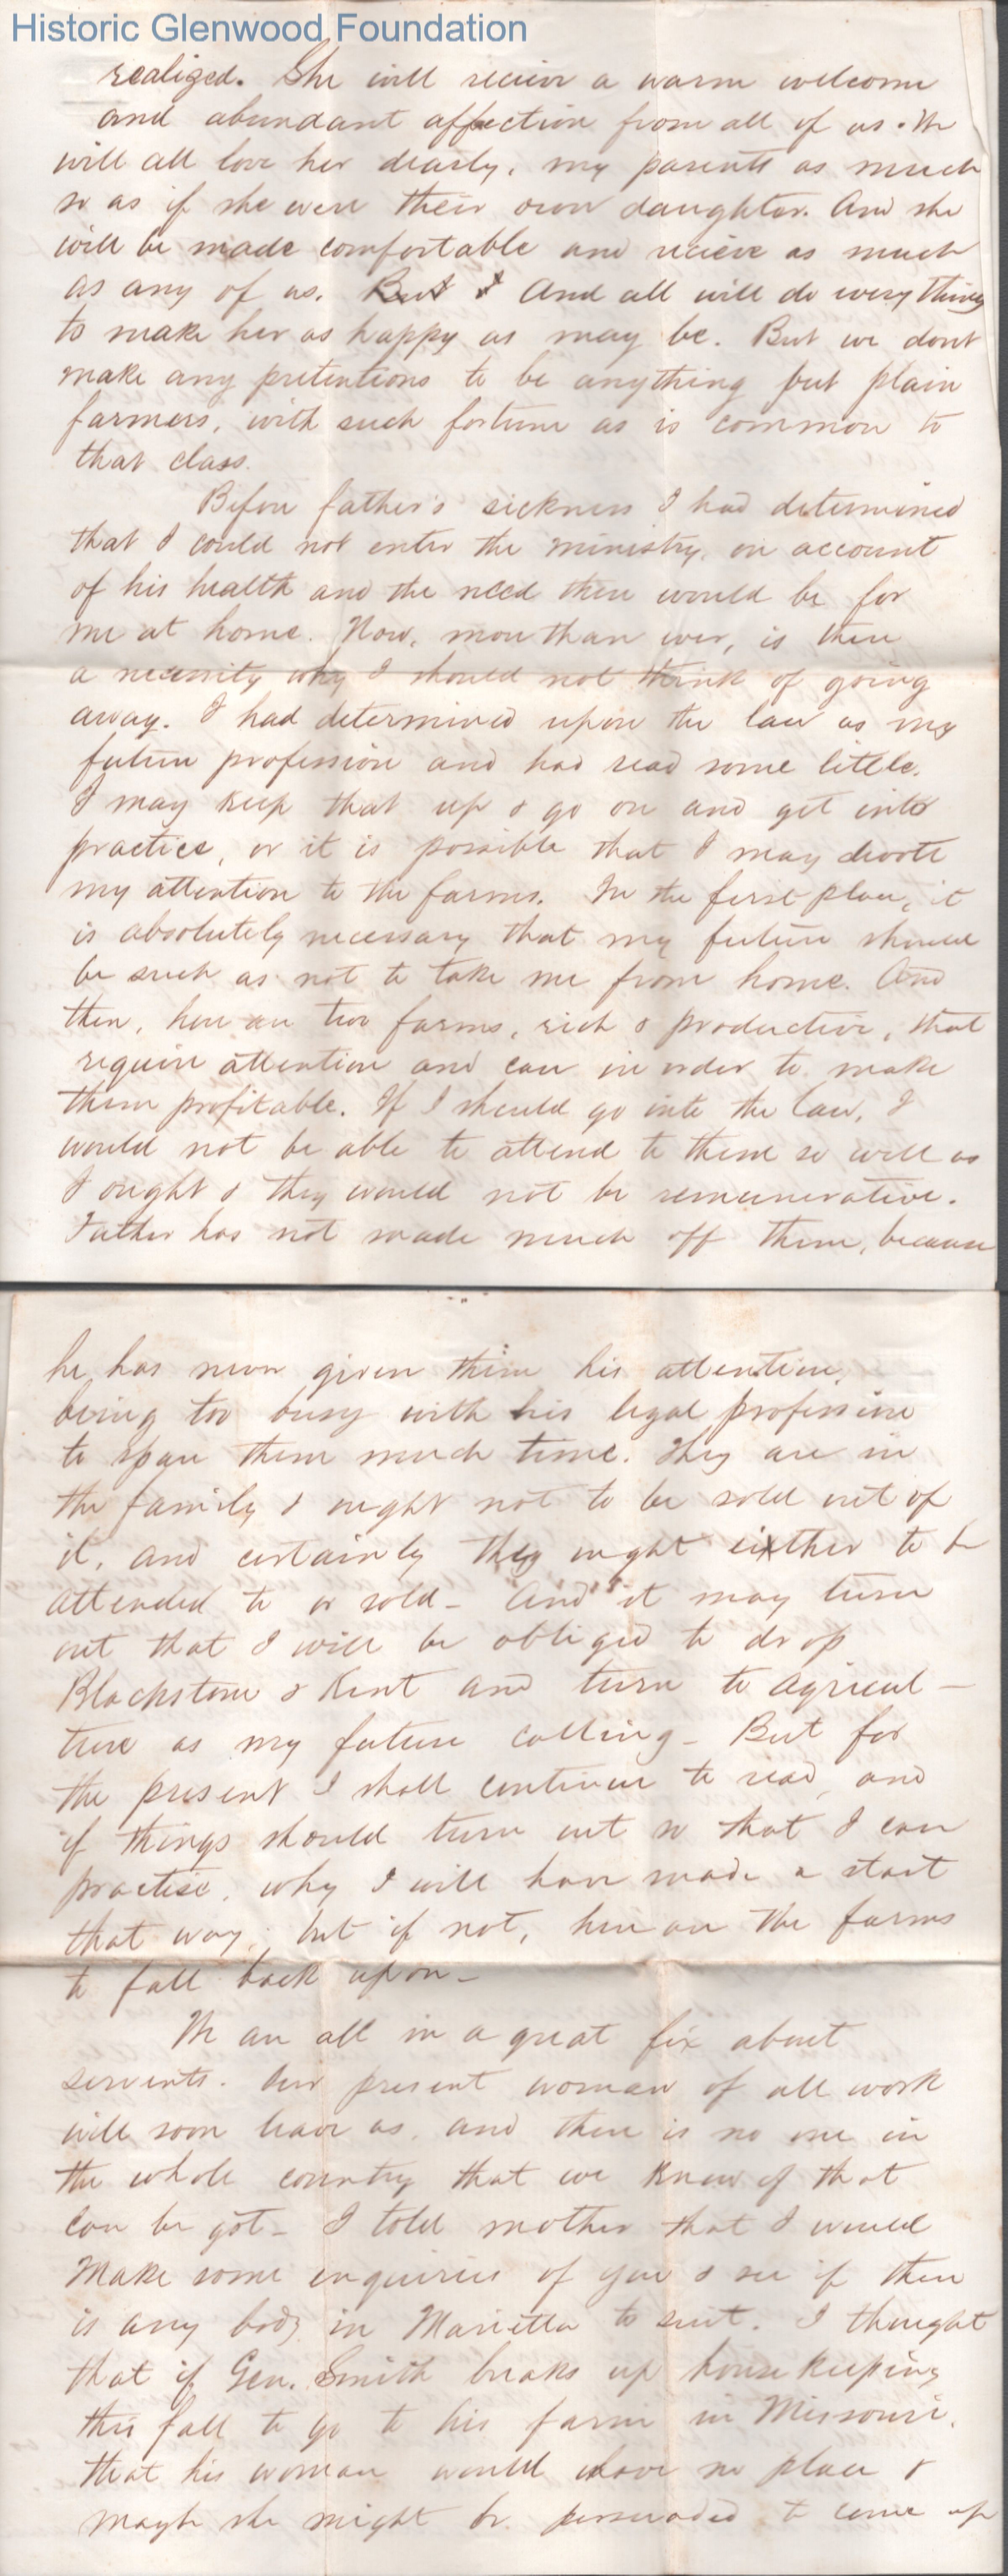 Historic Glenwood Foundation
realized. She will recieve a warm welcome
and abundant affection from all of us. We
will all love her dearly, my parents as much
so as if she were their own daughter. And she
will be made comfortable and recieve as much
as any of us. But I And all will do every thing
to make her as happy as may be. But we dont
make any pretentions to be anything but plain
farmers, with such fortune as is common to
that class.
Before father's sickness I had determined
that I could not enter the ministry, on account
of his health and the need there would be for
me at home. Now, more than ever, is there
a necessity why I should not think of going
away. I had determined upon the law as my
future profession and had read some little.
I may keep that up & go on and get into
practice, or it is possible that I may devote
my attention to the farms. In the first place, it
is absolutely necessary that my future should
be such as not to take me from home. And
then, here are two farms, rich & productive, that
require attention and care in order to make
them profitable. If I should go into the law, I
would not be able to attend to them so well as
I ought & they would not be remunerative.
Father has not made much off them, because
he has never given them his attention,
being too busy with his legal profession
to spare them much time. They are in
the family & ought not to be sold out of
it, and certainly they ought either to be
attended to or sold - And it may turn
out that I will be obliged to drop
Blackstone & Kent and turn to agricul-
ture as my future calling - But for
the present I shall continue to read, and
if things should turn out so that I can
practise, why I will have made a start
that way; but if not, here are the farms
to fall back upon -
We are all in a great fix about
servents. Our present woman of all work
will soon leave us, and there is no one in
the whole country that we know of that
can be got - I told mother that I would
make some enquiries of you & see if there
is any body in Marietta to suit. I thought
that if Gen. Smith breaks up housekeeping
this fall to go to his farm in Missouri,
that his woman would have no place &
maybe she might be persuaded to come up